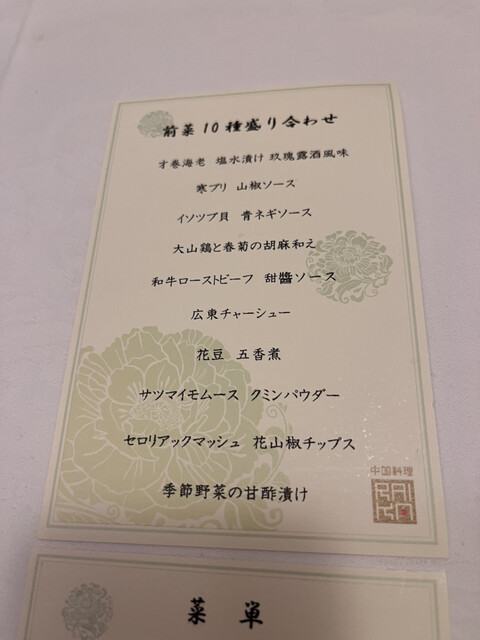 前菜10種盛り合わせ
才巻海老 塩水漬け 玫瑰露酒風味
寒ブリ 山椒ソース
イソツブ貝 青ネギソース
大山鶏と春菊の胡麻和え
和牛ローストビーフ 甜醬ソース
広東チャーシュー
花豆 五香煮
サツマイモムース クミンパウダー
セロリアックマッシュ 花山椒チップス
季節野菜の甘酢漬け
中国料理
菜単